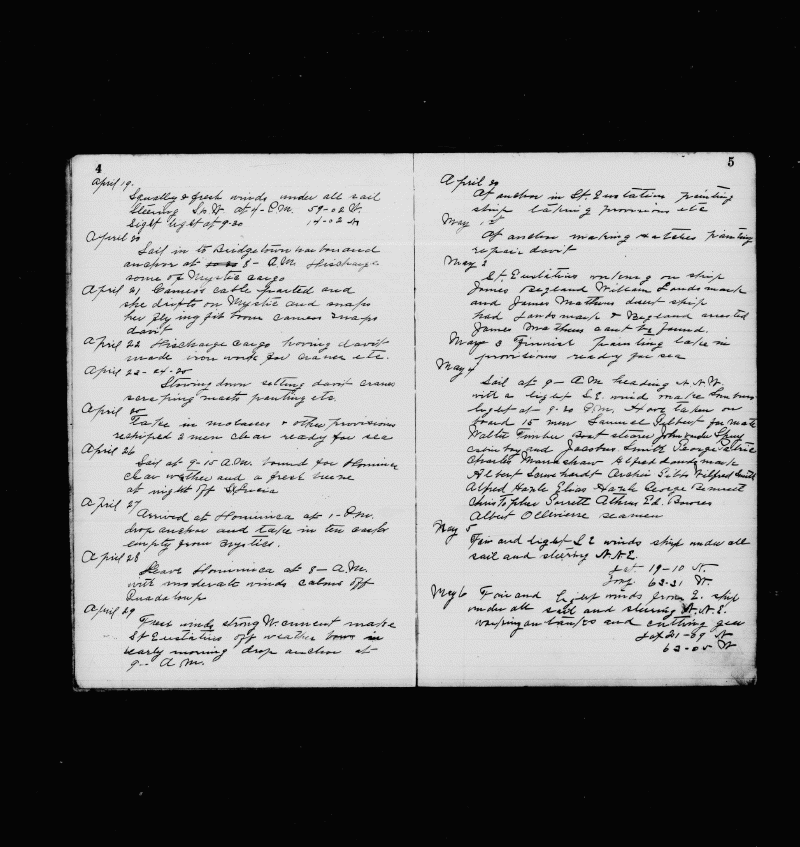 4
April 19.
Squally & fresh winds under all sail
steering S by W. at 4 - P.M. 59-02 W.
Sight light at 9-20 14-02 N
April 20
Sail in to Bridgetown harbor and
anchor at 8 - A.M. Discharge
some of Mystic cargo
April 21 Cameos cable parted and
she drifts on Mystic and snaps
her flying jib boom Cameos snaps
davit
April 22 Discharge cargo having davit
made iron work for cranes etc.
April 23-24-25
Stowing down setting davit cranes
scraping masts painting etc.
April 25
Take in molasses & other provisions
reshiped 2 men clear ready for sea
April 26
Sail at 9-15 A.M. bound for Dominica
clear weather and a fresh breeze
at night off St Lucia
April 27
Arrived at Dominica at 1 - P.M.
drop anchor and take in ten casks
empty from Mystics.
April 28
Leave Dominica at 8 - A.M.
with moderate winds calms off
Guadaloup
April 29
Fresh winds strong W. current make
St Eustatius off weather bows in
early morning drop anchor at
9 - A.M.
5
April 30
At anchor in St. Eustatius painting
ship taking provisions etc
May 1st
At anchor making hatches painting
repair davit
May 2
St. Eustatius working on ship
James Begland William Landsmark
and James Mathews desert ship
had Landsmark & Begland arrested
James Mathews cant be found.
May 3 Finnish painting take in
provisions ready for sea
May 4
Sail at 9 - A M heading N.N.W.
with a light S.E. wind make Sombrero
light at 9-20 P.M. Have taken on
board 15 men Samuel Gilbert for mate
Walter Timber Boat steerer John
cabin boy and Jacobus Smith George
Charles Alfred Landsmark
Albert Archie Gibbs Wilfred Smith
Alfred Hazle Elias Hazle George Bennett
Christopher Sorrett Ed. Bowers
Albert Ollivierre seamen
May 5
Fair and light S E winds ship under all
sail and steering N.N.E.
Lat. 19-10 N.
Long. 63-31 W.
May 6 Fair and light winds from E. ship
under all sail and steering N.N.E.
working on tanks and cutting gear
Lat 21-09 N
63-05 W